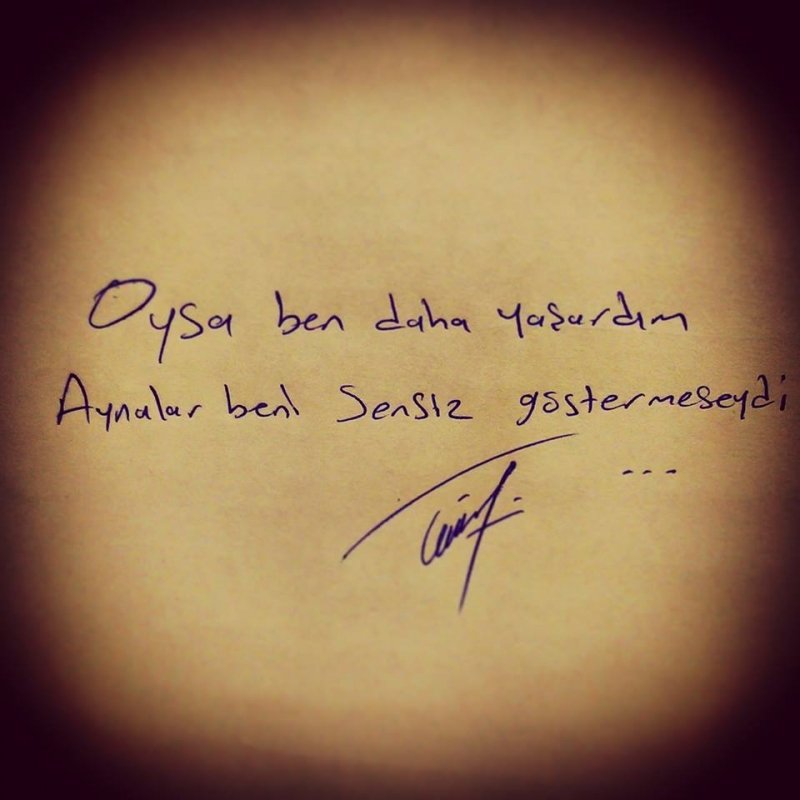 Oysa ben daha yaşardım
Aynalar beni Sensiz göstermeseydi
...